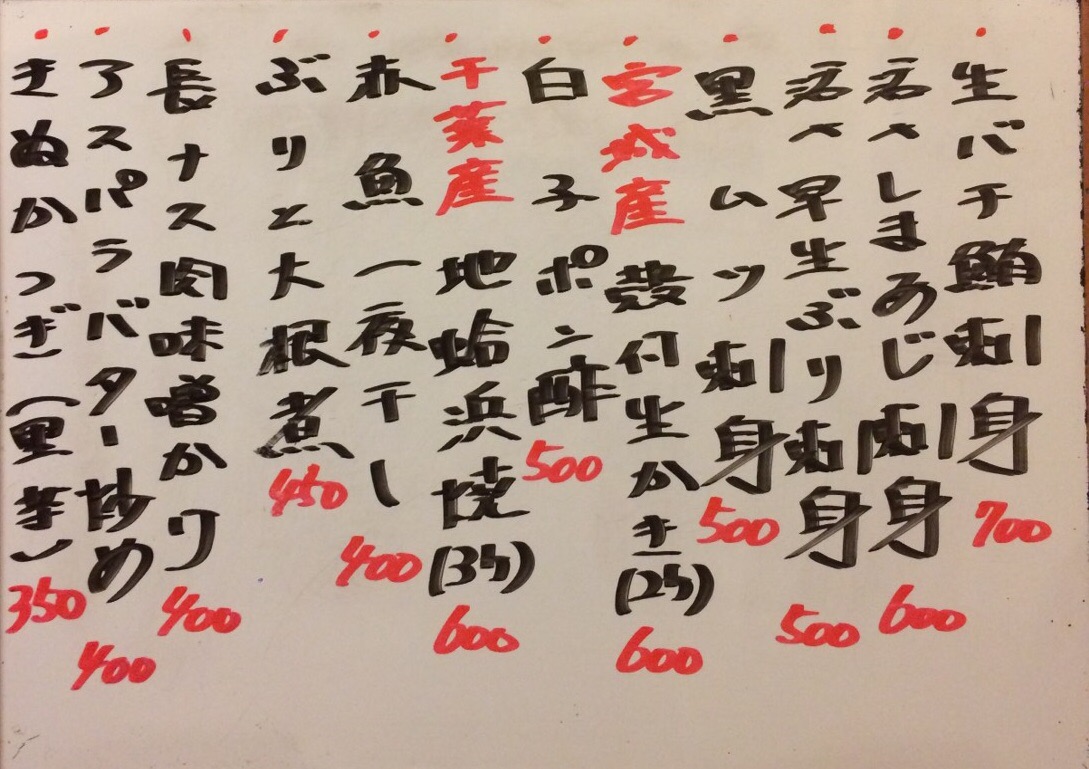 生バチ鮪刺身 700
しまあじ刺身 600
早生ぶり刺身 500
黒ムツ刺身 500
宮城産 殻付生かき(2ケ) 600
白子ポン酢 500
千葉産 地蛤浜焼(3ケ) 600
赤魚一夜干し 400
ぶりと大根煮 450
長ナス肉味噌かけ 400
アスパラバター炒め 400
きぬかつぎ(里芋) 350